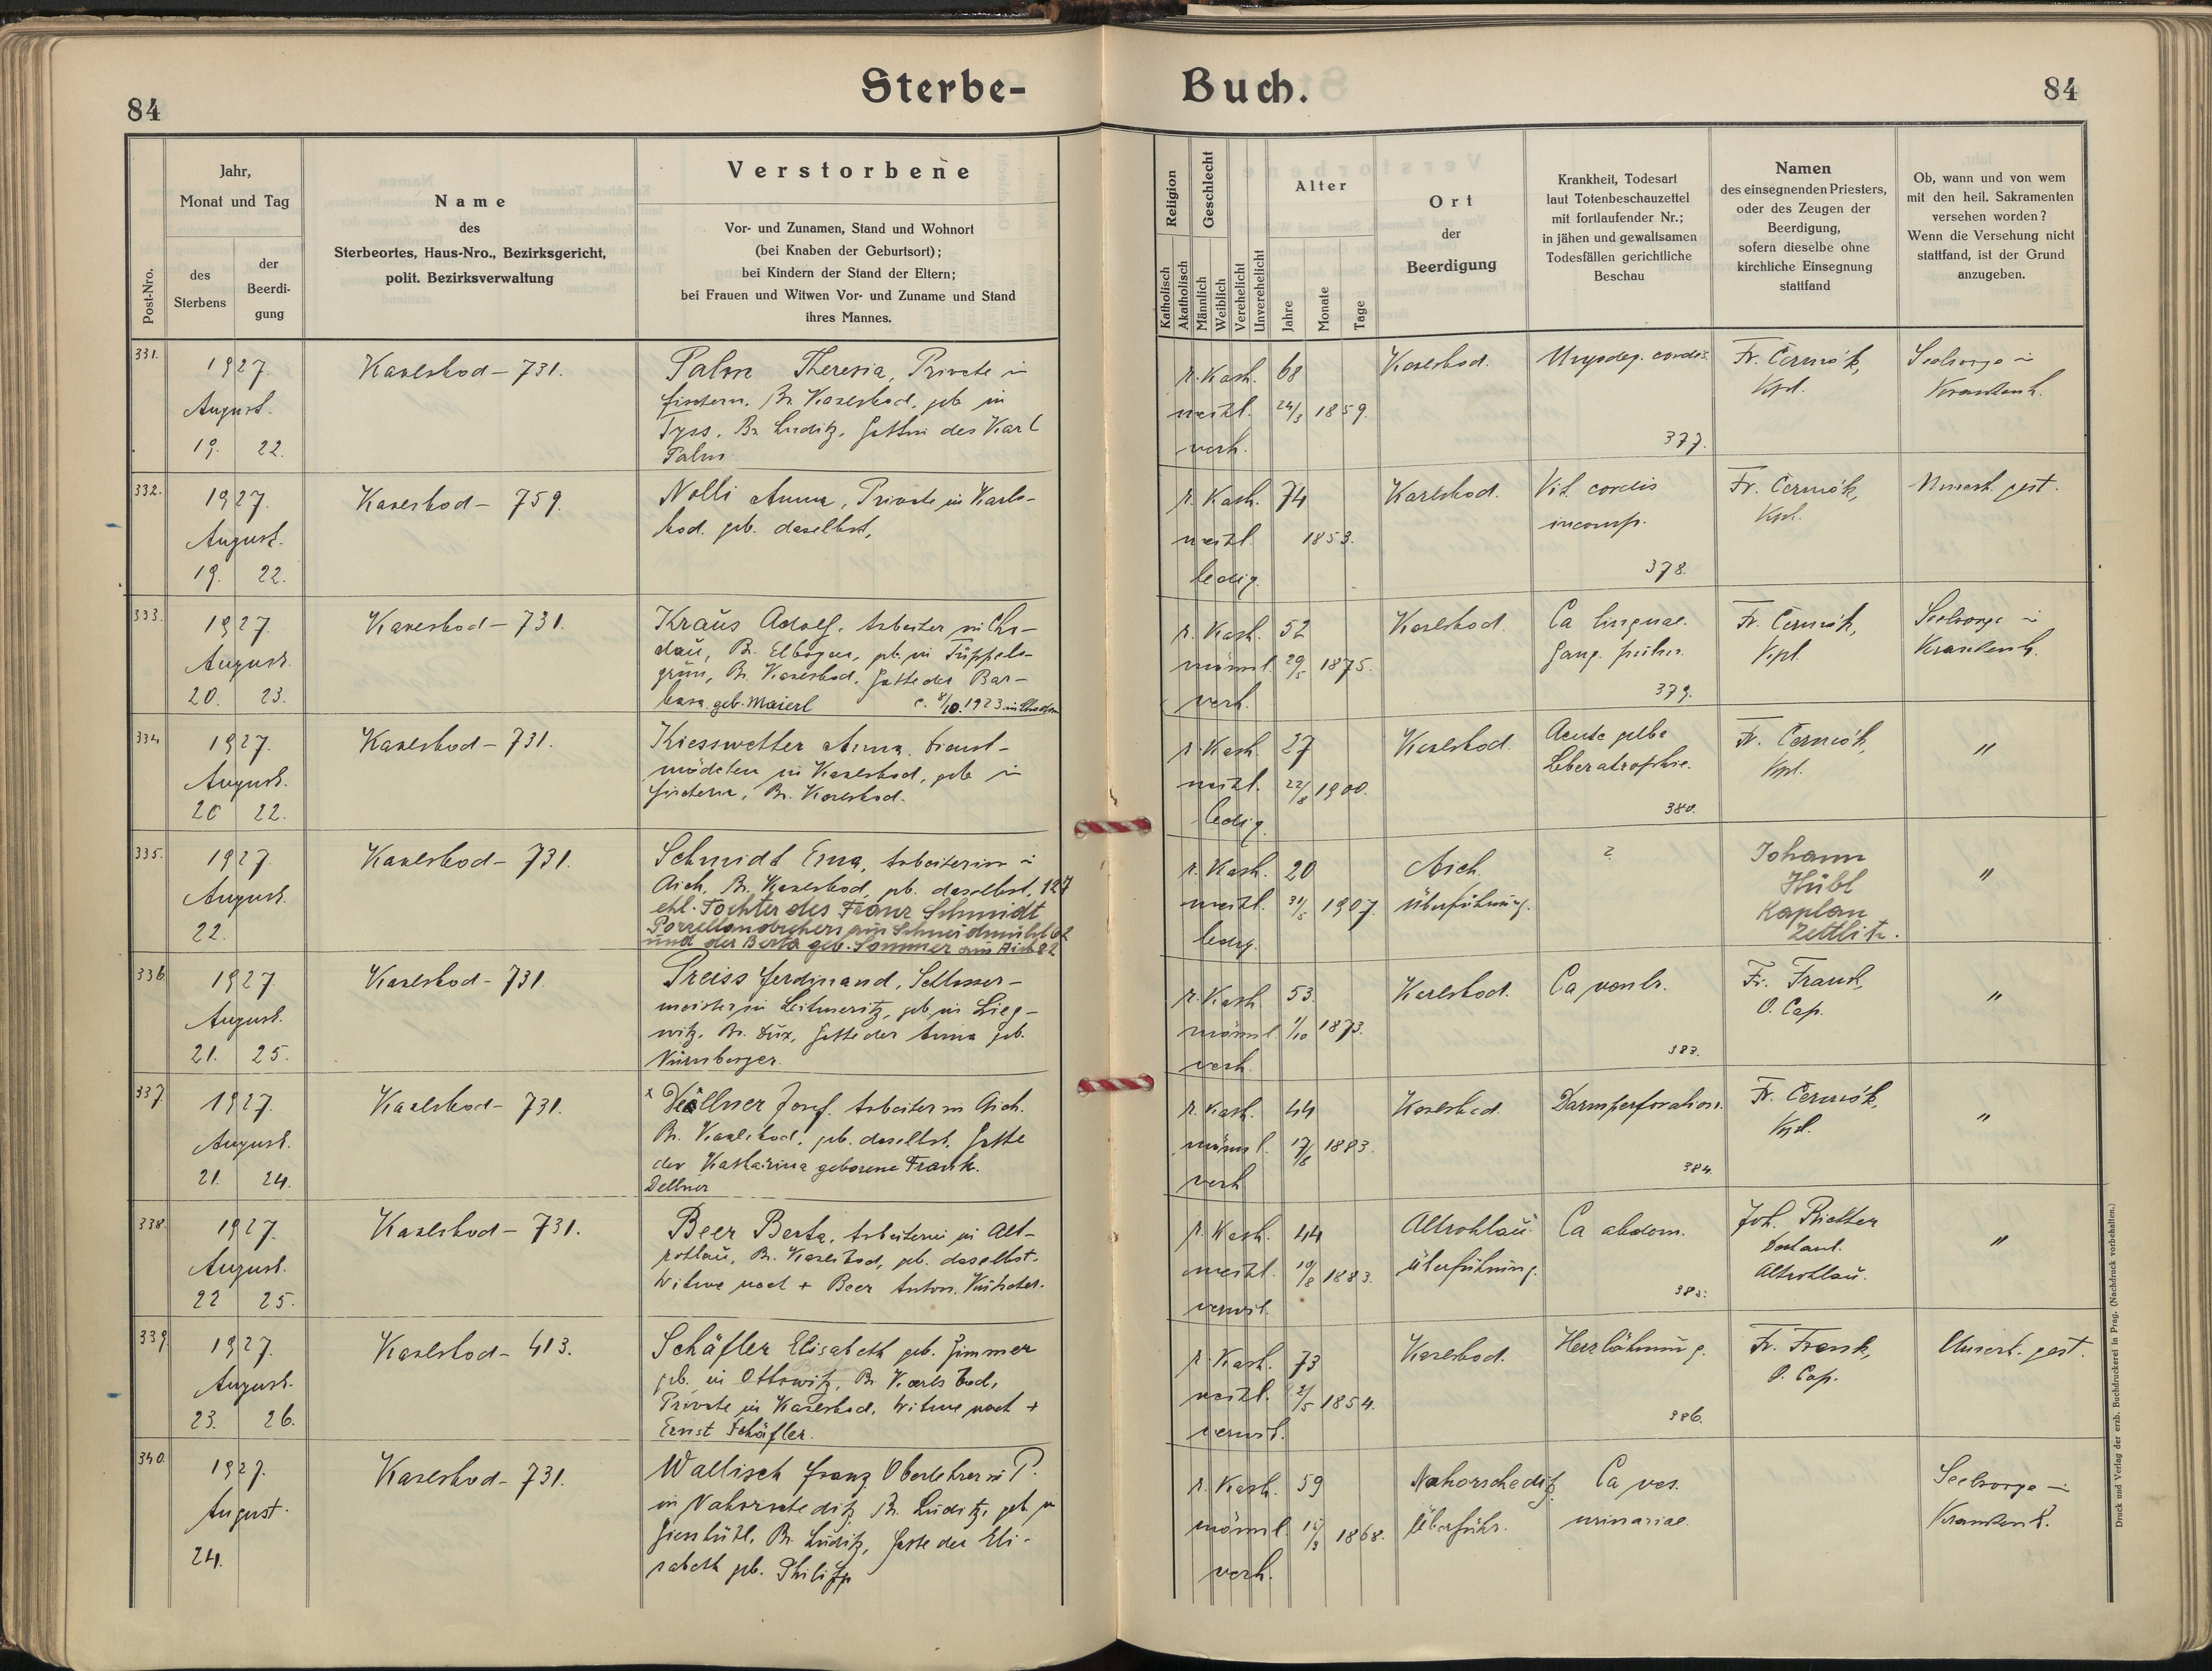 84
Sterbe-
Buch.
84
Post-Nro.
Jahr,
Monat und Tag
des
Sterbens
der
Beerdi-
gung
Name
des
Sterbeortes, Haus-Nro., Bezirksgericht,
polit. Bezirksverwaltung
Verstorbene
Vor- und Zunamen, Stand und Wohnort
(bei Knaben der Geburtsort);
bei Kindern der Stand der Eltern;
bei Frauen und Witwen Vor- und Zuname und Stand
ihres Mannes.
Religion
Katholisch
Akatholisch
Geschlecht
Männlich
Weiblich
Verehelicht
Unverehelicht
Alter
Jahre
Monate
Tage
Ort
der
Beerdigung
Krankheit, Todesart
laut Totenbeschauzettel
mit fortlaufender Nr.;
in jähen und gewaltsamen
Todesfällen gerichtliche
Beschau
Namen
des einsegnenden Priesters,
oder des Zeugen der
Beerdigung,
sofern dieselbe ohne
kirchliche Einsegnung
stattfand
Ob, wann und von wem
mit den heil. Sakramenten
versehen worden?
Wenn die Versehung nicht
stattfand, ist der Grund
anzugeben.
331.
1927.
August.
19. 22.
Karlsbad - 731.
Palm Theresia, Private in
Fischern, Bz. Karlsbad, geb. in
Tyss, Bz. Luditz, Gattin des Karl
Palm
r. Kath. 68
weibl. 24/3 1859.
verh.
Karlsbad.
cordis.
377.
Fr. Čermák,
Kpl.
Seelsorge in
Krankenh.
332.
1927.
August.
19. 22.
Karlsbad - 759.
Nolli Anna, Private in Karls-
bad, geb. daselbst,
r. Kath. 74
weibl. 1853.
ledig.
Karlsbad.
Vit. cordis
incomp.
378.
Fr. Čermák,
Kpl.
gest.
333.
1927.
August.
20. 23.
Karlsbad - 731.
Kraus Adolf, Arbeiter in Cho-
dau, Bz. Elbogen, geb. in Tüppels-
grün, Bz. Karlsbad, Gatte der Bar-
bara geb. Maierl c. 8/10. 1923 in Chodau
r. Kath. 52
männl. 29/5 1875.
verh.
Karlsbad.
Ca linguae.
Gang. pulm.
379.
Fr. Čermák,
Kpl.
Seelsorge in
Krankenh.
334
1927.
August.
20 22.
Karlsbad - 731.
Kiesswetter Anna, Dienst-
mädchen in Karlsbad, geb. in
Fischern, Bz. Karlsbad.
r. Kath. 27
weibl. 22/8 1900.
ledig.
Karlsbad.
Acute gelbe
Leberatrophie.
380.
Fr. Čermák,
Kpl.
"
335.
1927.
August.
22.
Karlsbad - 731.
Schmidt Erna, Arbeiterin in
Aich, Bz. Karlsbad, geb. daselbst, 127
ehl. Tochter des Franz Schmidt
Porzellandrehers aus Schneidmühl 62
und der Berta geb. Sommer aus Aich 82
r. Kath. 20
weibl. 31/5 1907.
ledig.
Aich.
überführung.
?
Johann
Hübl
Kaplan
Zettlitz.
"
336
1927.
August.
21. 25.
Karlsbad - 731
Preiss Ferdinand, Schlosser-
meister in Leitmeritz, geb. in Lieg-
nitz, Bz. Dux, Gatte der Anna geb.
Nürnberger.
r. Kath. 53.
männl. 1/10 1873.
verh.
Karlsbad.
Ca
383.
Fr. Frank,
O. Cap.
"
337
1927.
August.
21. 24.
Karlsbad - 731.
Josef, Arbeiter in Aich.
Bz. Karlsbad, geb. daselbst. Gatte
der Katharina geborene Frank.
Dellner
r. Kath. 44
männl. 17/8 1883.
verh
Karlsbad.
Darmperforation.
384.
Fr. Čermák,
Kpl.
"
338.
1927.
August.
22 25.
Karlsbad - 731.
Beer Berta, Arbeiterin in Alt-
rohlau, Bz. Karlsbad, geb. daselbst.
Witwe nach + Beer Anton, Kutscher.
r. Kath. 44
weibl. 19/8 1883.
verwit.
Altrohlau
überführung.
Ca abdom.
385.
Joh. Richter
Altrohlau.
"
339
1927.
August.
23. 26.
Karlsbad - 413.
Schäfler Elisabeth geb. Zimmer
geb. in Ottowitz, Bz. Karlsbad,
Private in Karlsbad, Witwe nach +
Ernst Schäfler.
r. Kath. 73
weibl. 21/5 1854.
verwit.
Karlsbad.
Herzlähmung.
386.
Fr. Frank,
O. Cap.
gest.
340.
1927.
August.
24.
Karlsbad - 731.
Wallisch Franz Oberlehrer in P.
in Nahorscheditz Bz. Luditz, geb. in
Giesshübl, Bz. Luditz, Gatte der Eli-
sabeth geb. Philipp
r. Kath. 59
männl. 15/3 1868.
verh.
Nahorscheditz
Überführ.
Ca ves.
urinariae.
Seelsorge in
Krankenh.
Druck und Verlag der erzb. Buchdruckerei in Prag. (Nachdruck vorbehalten.)